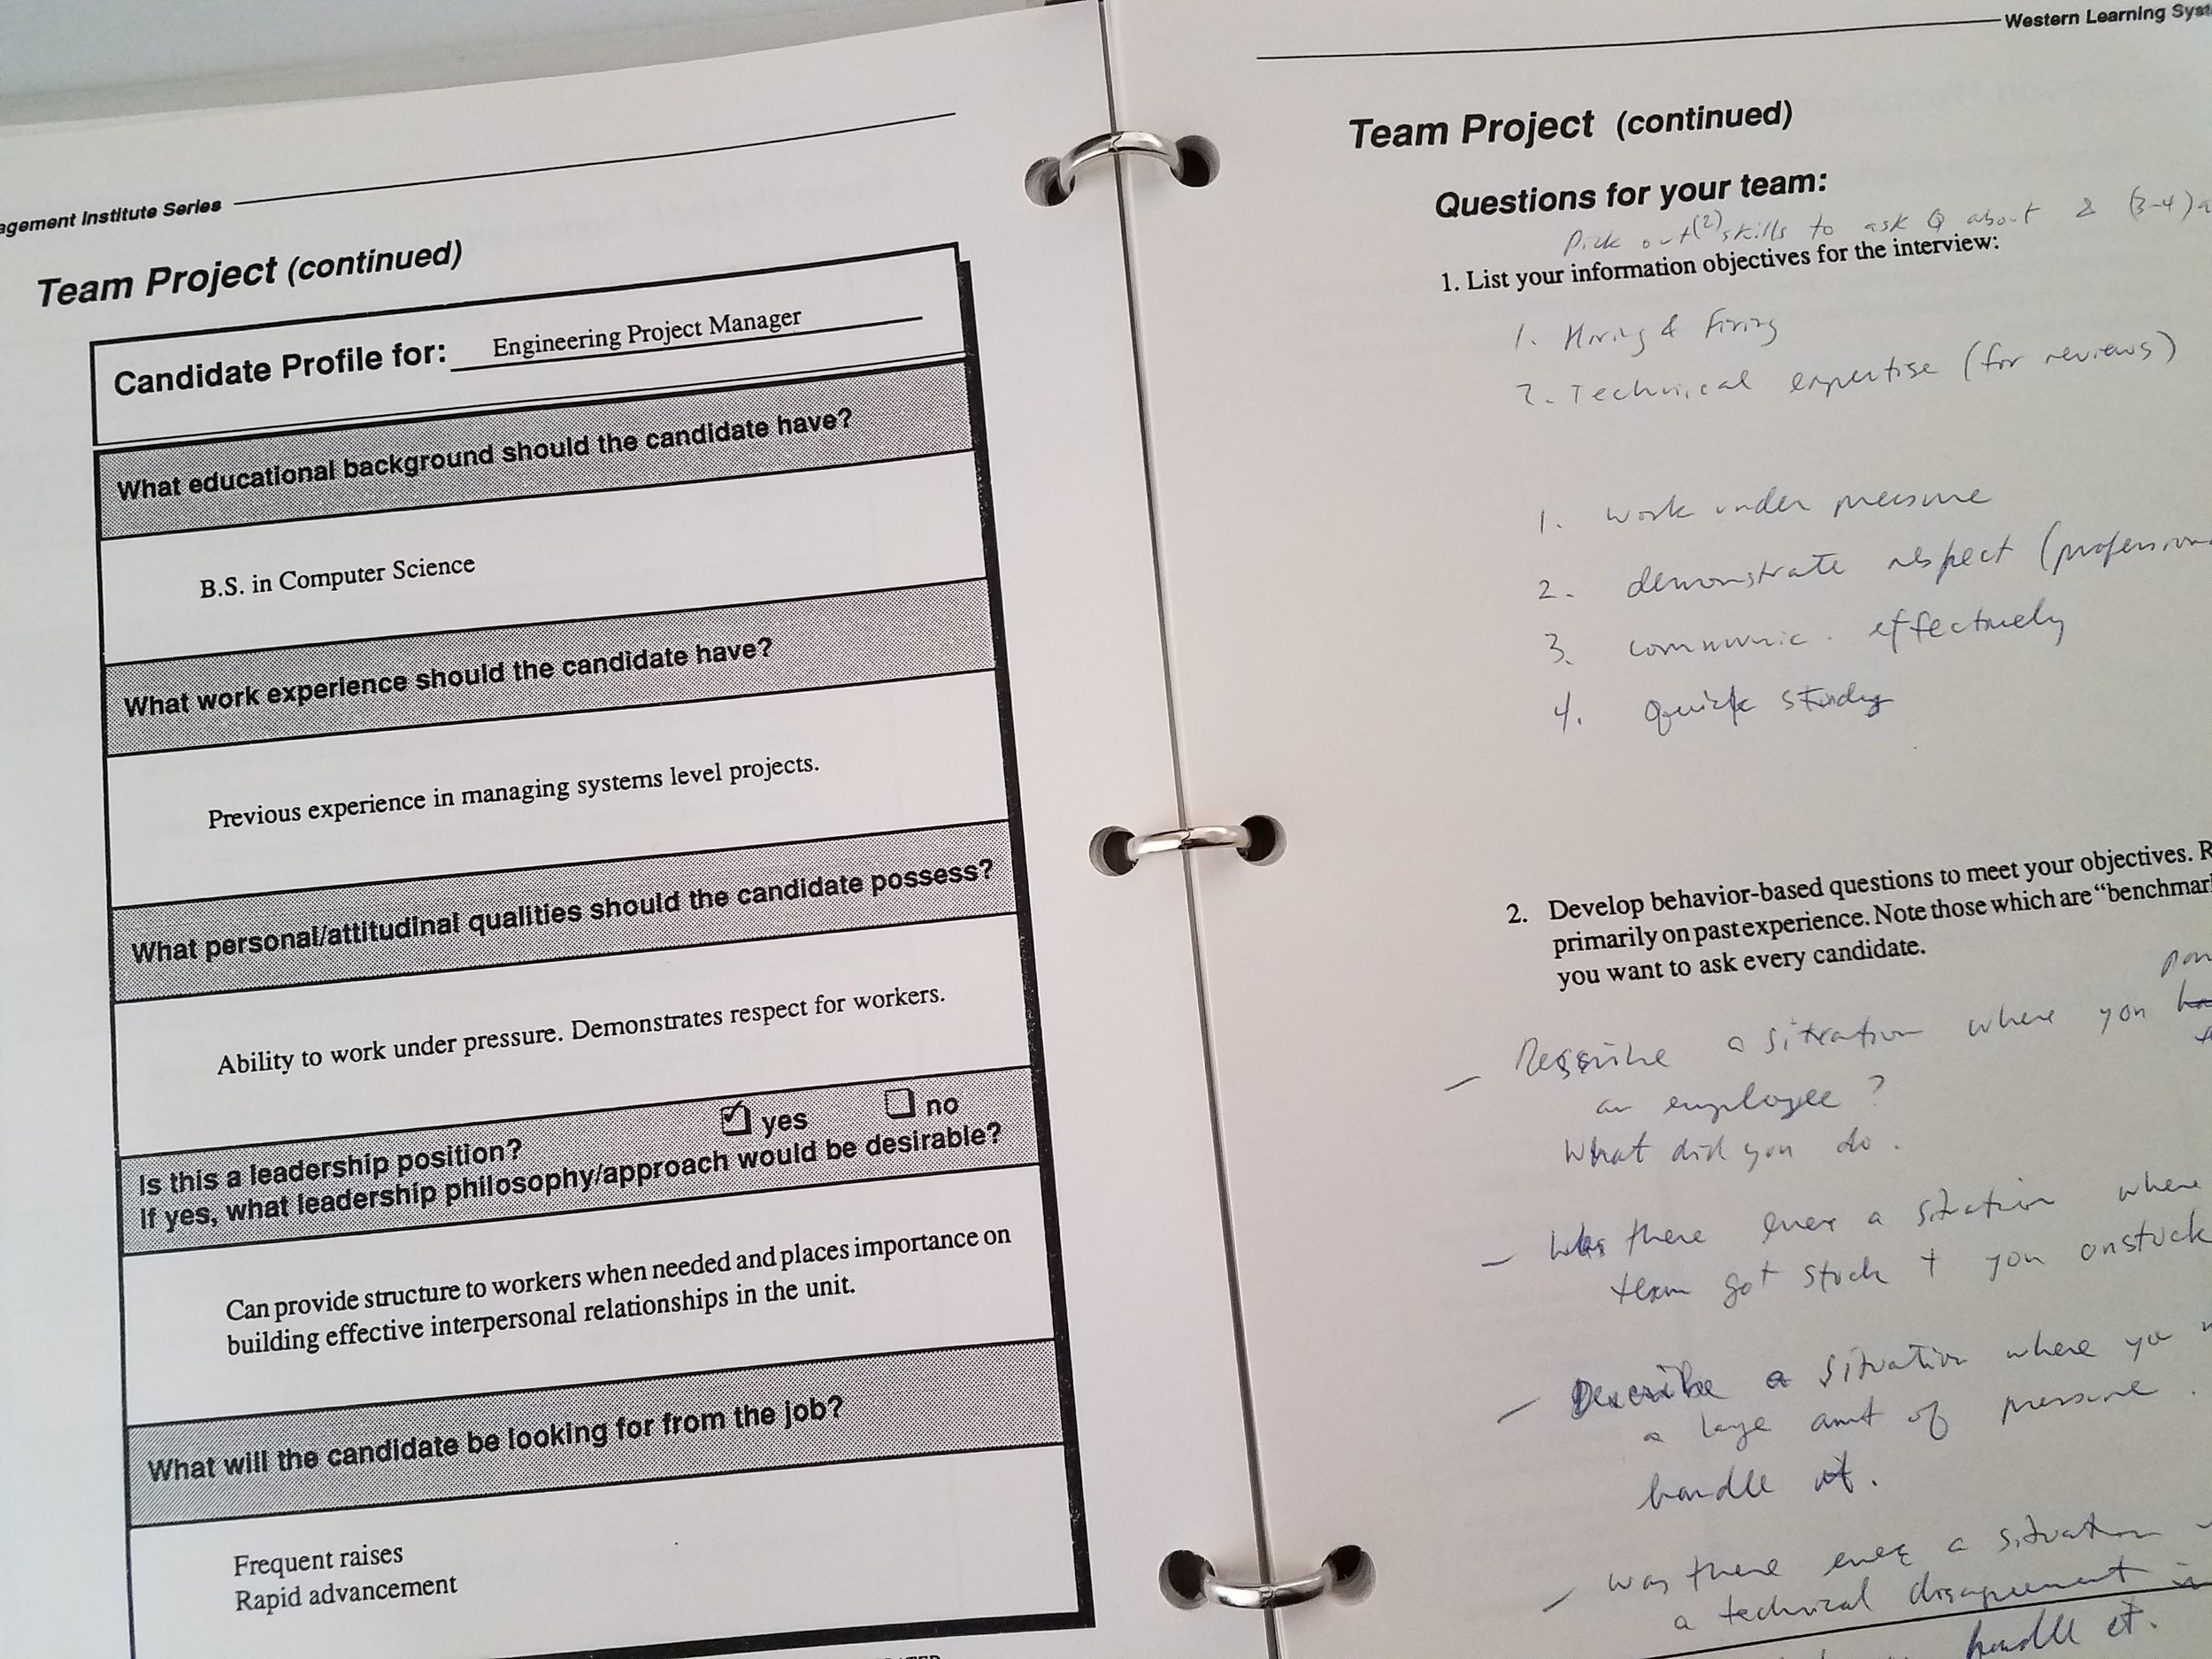 agement Institute Series
Team Project (continued)
Candidate Profile for: Engineering Project Manager
What educational background should the candidate have?
B.S. in Computer Science
What work experience should the candidate have?
Previous experience in managing systems level projects.
What personal/attitudinal qualities should the candidate possess?
Ability to work under pressure. Demonstrates respect for workers.
Is this a leadership position? yes no
If yes, what leadership philosophy/approach would be desirable?
Can provide structure to workers when needed and places importance on
building effective interpersonal relationships in the unit.
What will the candidate be looking for from the job?
Frequent raises
Rapid advancement
Western Learning Syst
Team Project (continued)
Questions for your team:
Pick out (2) skills to ask Q about & (3-4) a
1. List your information objectives for the interview:
1. Hiring & Firing
2. Technical expertise (for reviews)
1. work under pressure
2. demonstrate respect (profession
3. communic. effectively
4. quick study
2. Develop behavior-based questions to meet your objectives. R
primarily on past experience. Note those which are "benchmark
you want to ask every candidate.
- Describe a situation where you
an employee?
What did you do.
- Was there ever a situation where
team got stuck + you unstuck
- Describe a situation where you
a large amt of pressure.
handle it.
- Was there ever a situation
a technical disagreement
handle it.